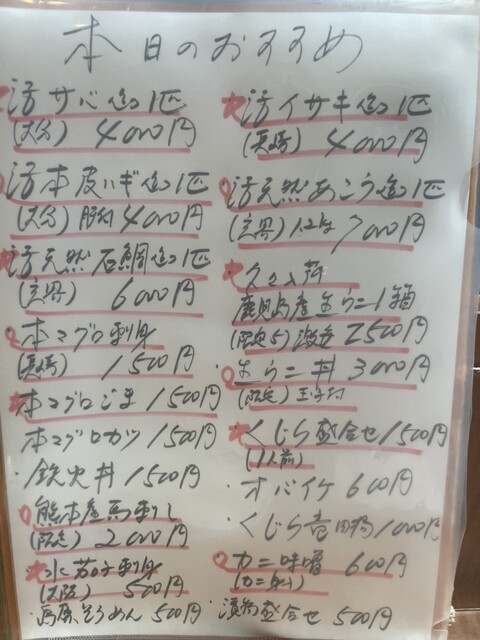 本日のおすすめ
活サバ造1匹
(大分) 4000円
活本皮ハギ造1匹
(大分) 肝付 4000円
活天然石鯛造1匹
(玄界) 6000円
本マグロ刺身
(長崎) 1500円
本マグロごま 1500円
本マグロカツ 1500円
・鉄火丼 1500円
熊本産馬刺し
(限定) 2000円
水茄子刺身
(大阪) 500円
・島原そうめん 500円
活イサキ造1匹
(長崎) 4000円
活天然あこう造1匹
(玄界) 1.2kg 7000円
久々入荷
鹿児島産生うに1箱
(限定5) 激安 2500円
生うに丼 3000円
(限定) 玉子付
くじら盛合せ 1500円
(1人前)
・オバイケ 600円
・くじら竜田揚 1000円
カニ味噌 600円
(カニ身入)
・漬物盛合せ 500円